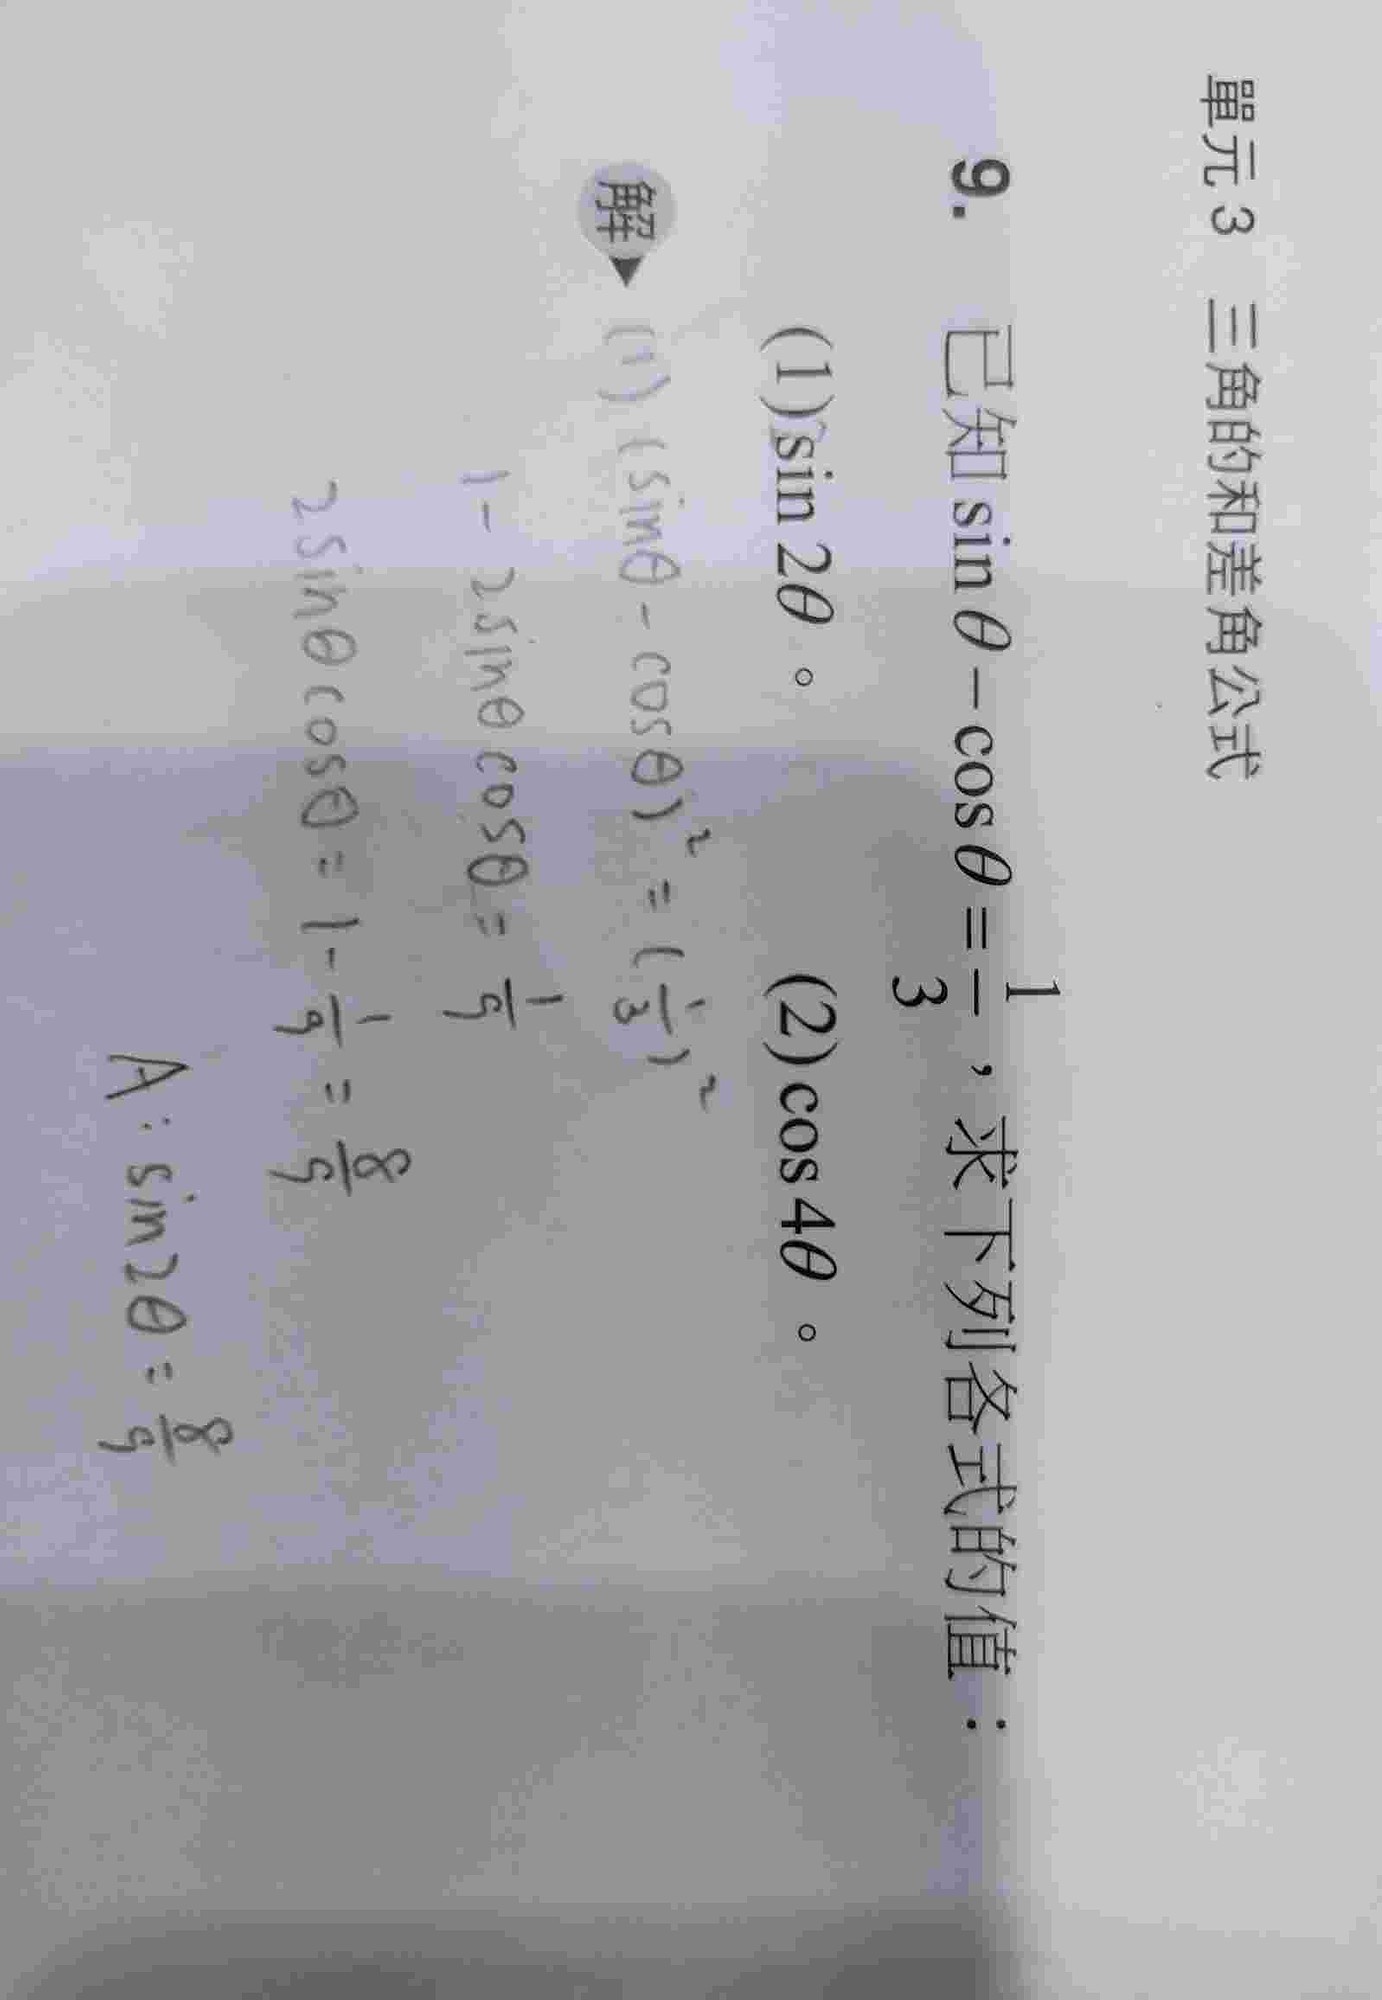 單元 3 三角的和差角公式
9. 已知 sin θ − cos θ = 1/3，求下列各式的值：
(1) sin 2θ 。 (2) cos 4θ 。
解 (1) (sinθ - cosθ)² = (1/3)²
1 - 2sinθcosθ = 1/9
2sinθcosθ = 1 - 1/9 = 8/9
A: sin2θ = 8/9